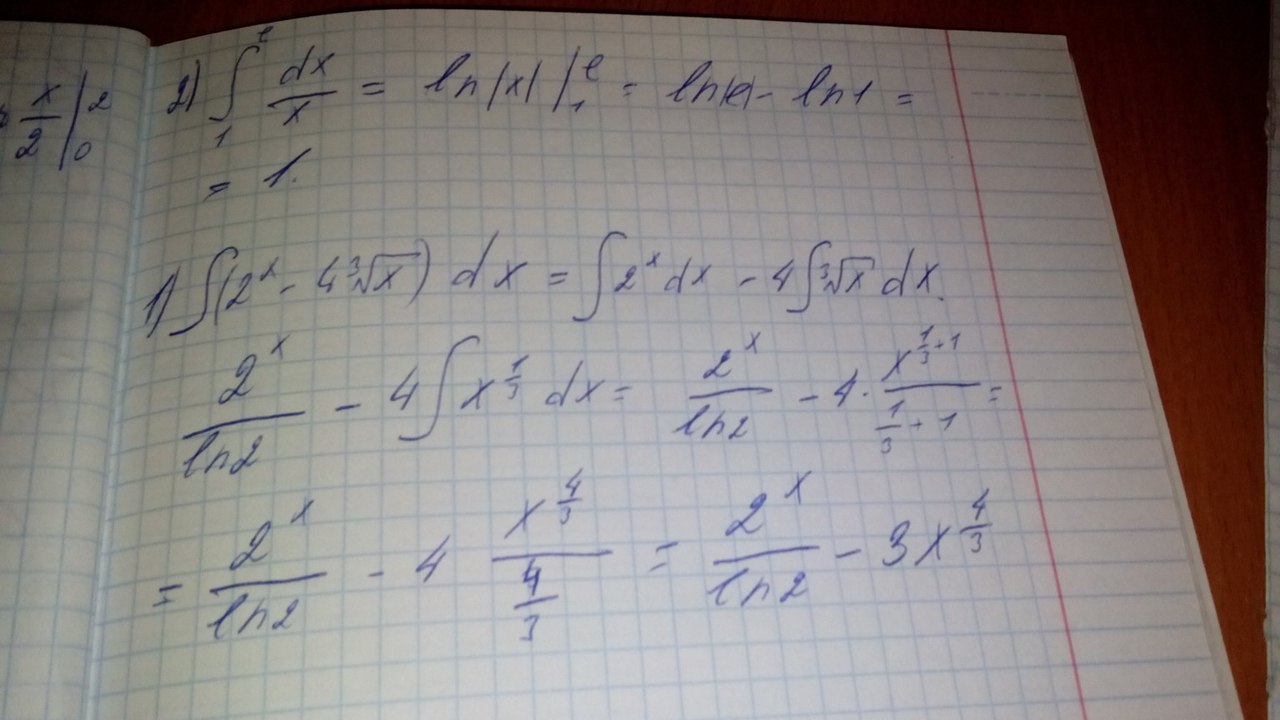 x/2 |₀²
2) ∫₁ᵉ dx/x = ln|x| |₁ᵉ = ln|e| - ln1 =
= 1.
1) ∫(2ˣ - 4∛x) dx = ∫2ˣ dx - 4∫∛x dx
2ˣ/ln2 - 4∫x^(1/3) dx = 2ˣ/ln2 - 4 · x^(1/3+1)/(1/3+1) =
= 2ˣ/ln2 - 4 x^(4/3)/(4/3) = 2ˣ/ln2 - 3x^(4/3)